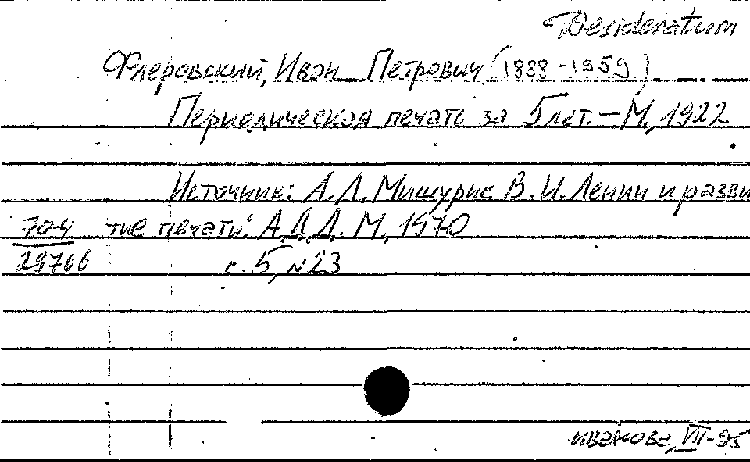 Desideratum
Флеровский, Иван Петрович (1888-1959)
Периодическая печать за 5 лет. — М., 1922
Источник: А.Л. Мишурис В.И. Ленин и разви
704 тие печати: А.Д.Д. М., 1970
29766 с. 5, №23
Иванова, VII-95